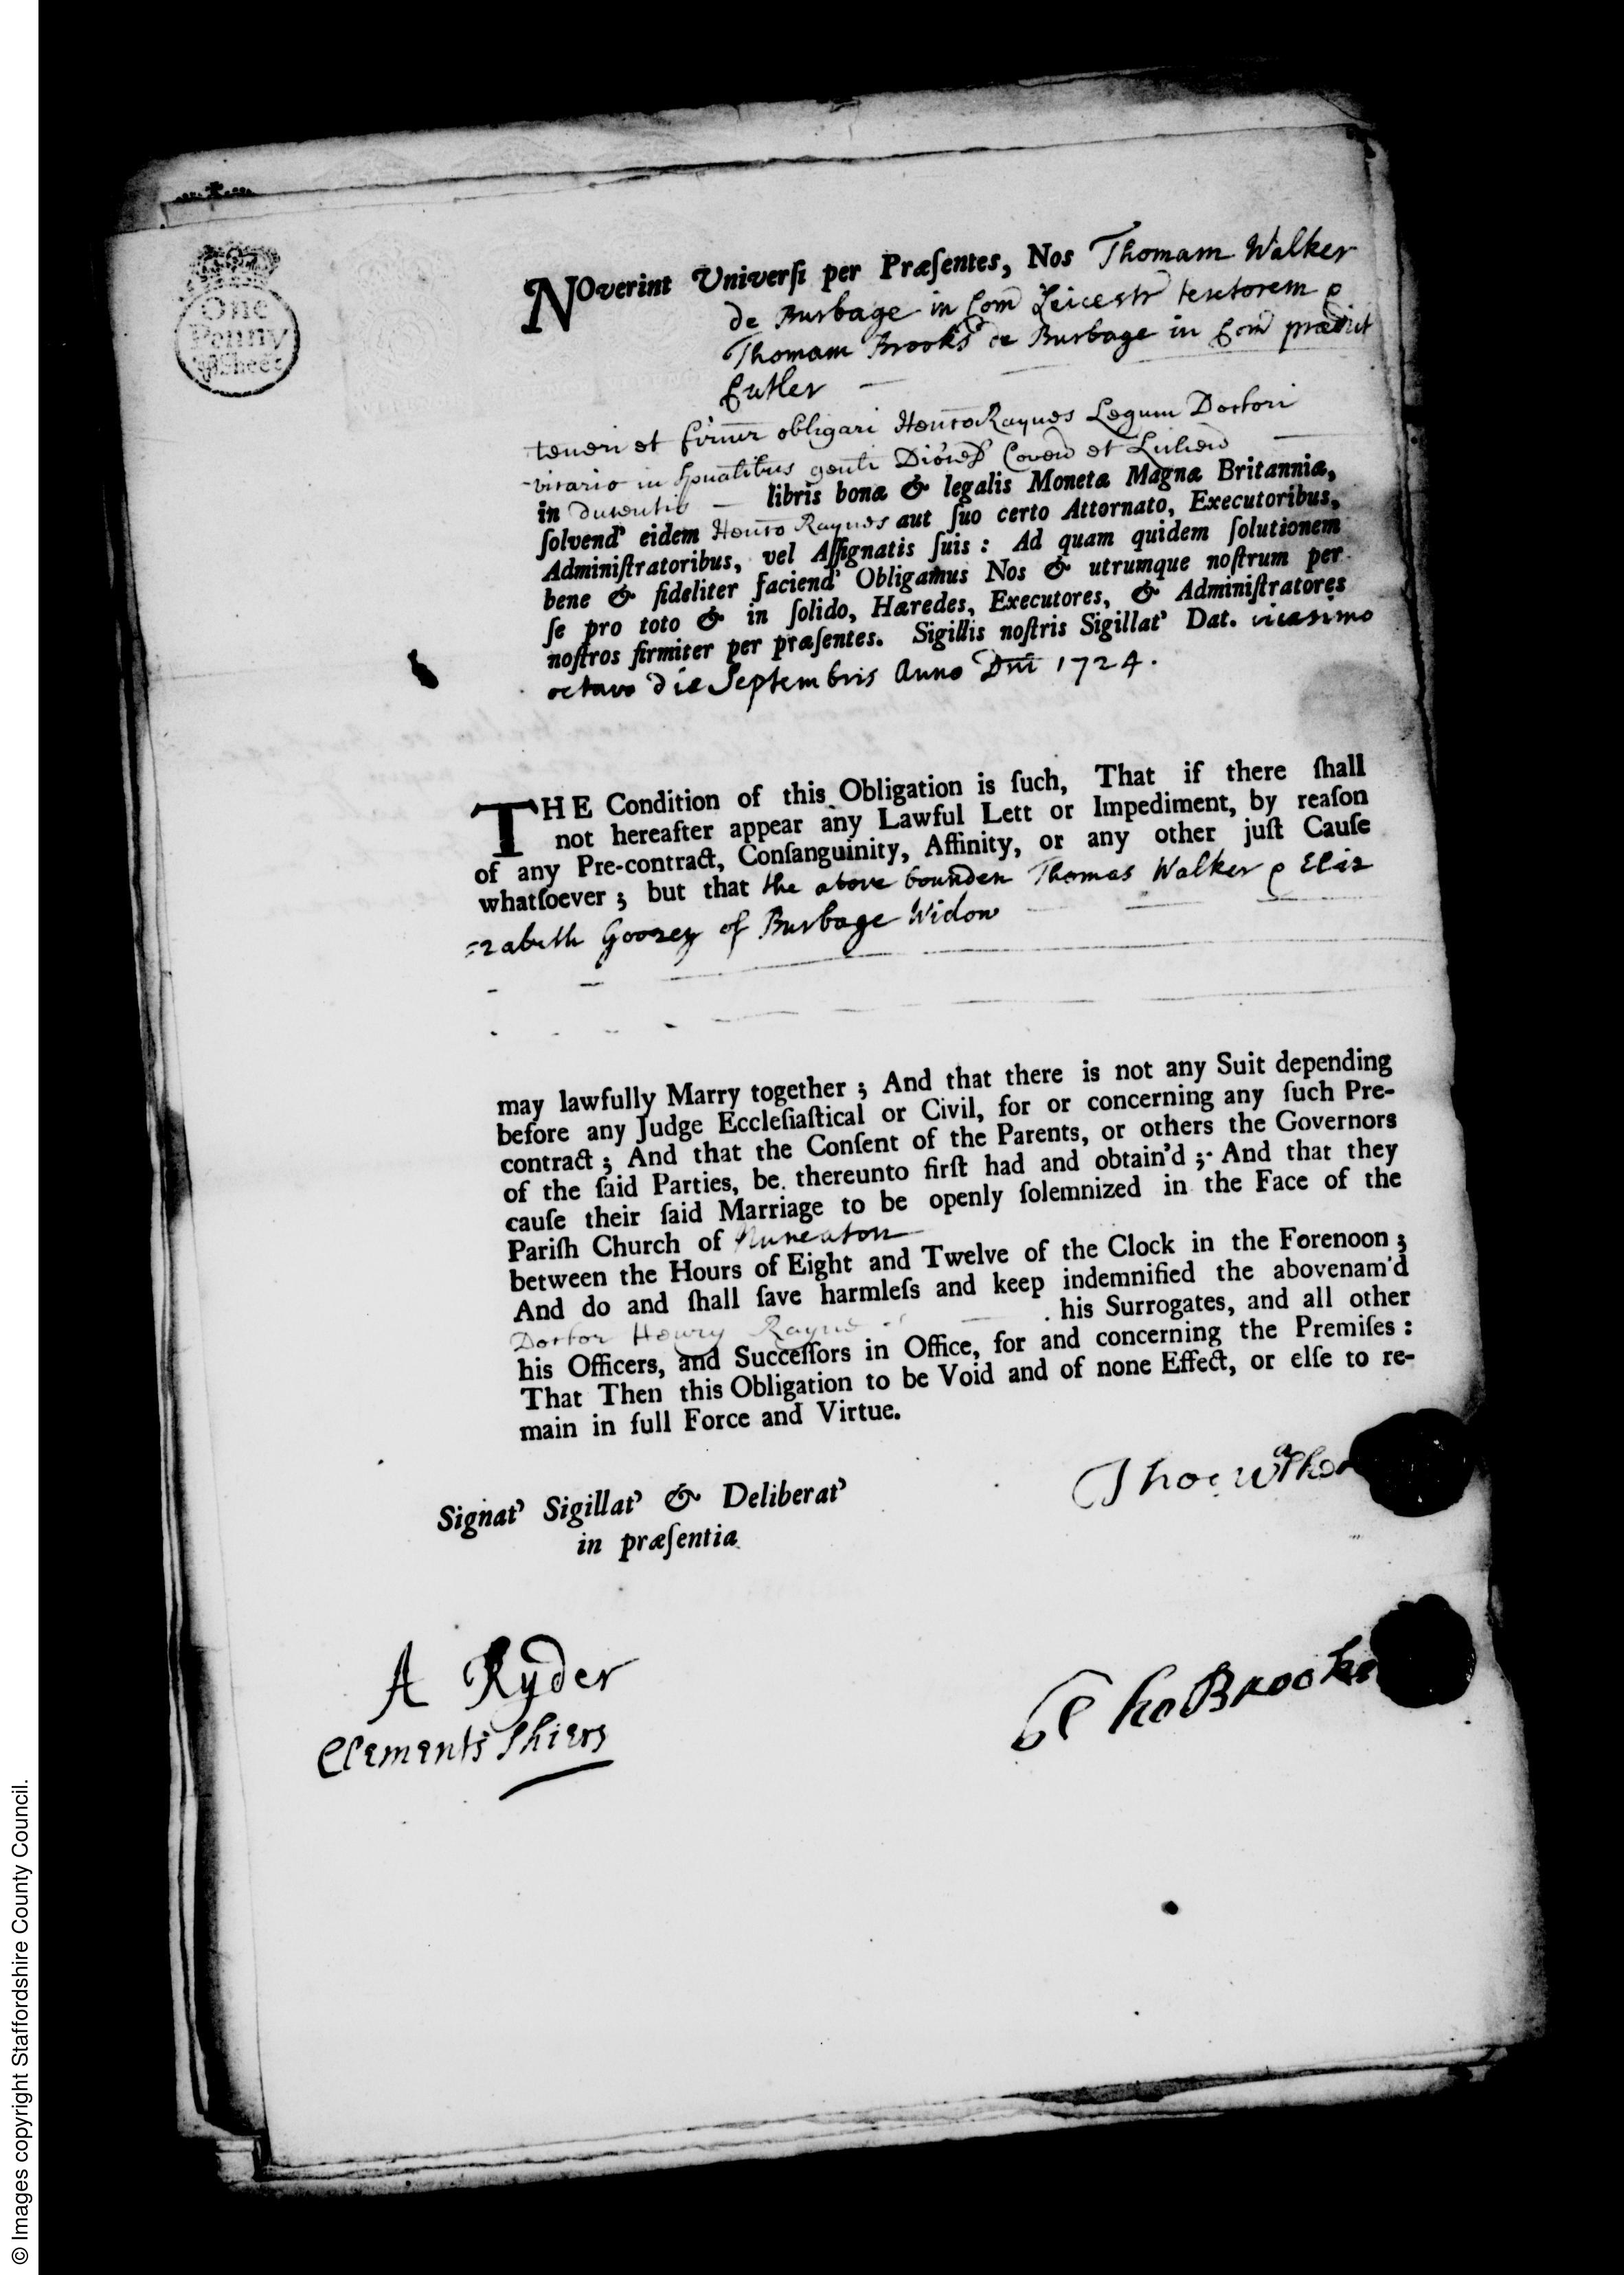 One
Penny
Shee
NOverint Univerſi per Præſentes, Nos Thomam Walker
de Burbage in Com Leicestr textorem &
Thomam Brooks de Burbage in Com prædict
Cutler
teneri et firmr obligari Henrico Raynes Legum Doctori
vicario in spualibus genli Dioces Coven et Lichen
in ducentis libris bonæ & legalis Monetæ Magnæ Britanniæ,
ſolvend' eidem Henrico Raynes aut ſuo certo Attornato, Executoribus,
Adminiſtratoribus, vel Aſſignatis ſuis: Ad quam quidem ſolutionem
bene & fideliter faciend' Obligamus Nos & utrumque noſtrum per
ſe pro toto & in ſolido, Hæredes, Executores, & Adminiſtratores
noſtros firmiter per præſentes. Sigillis noſtris Sigillat' Dat. vicesimo
octavo die Septembris Anno Dni 1724.
THE Condition of this Obligation is ſuch, That if there ſhall
not hereafter appear any Lawful Lett or Impediment, by reaſon
of any Pre-contract, Conſanguinity, Affinity, or any other juſt Cauſe
whatſoever; but that the above bounden Thomas Walker & Eliz
=zabeth Goozey of Burbage Widow
may lawfully Marry together; And that there is not any Suit depending
before any Judge Eccleſiaſtical or Civil, for or concerning any ſuch Pre-
contract; And that the Conſent of the Parents, or others the Governors
of the ſaid Parties, be thereunto firſt had and obtain'd; And that they
cauſe their ſaid Marriage to be openly ſolemnized in the Face of the
Pariſh Church of Nuneaton
between the Hours of Eight and Twelve of the Clock in the Forenoon;
And do and ſhall ſave harmleſs and keep indemnified the abovenam'd
Doctor Henry Raynes his Surrogates, and all other
his Officers, and Succeſſors in Office, for and concerning the Premiſes:
That Then this Obligation to be Void and of none Effect, or elſe to re-
main in full Force and Virtue.
Signat' Sigillat' & Deliberat'
in præſentia
Tho: Walker
A Ryder
Clements Shiers
Tho Brooks
© Images copyright Staffordshire County Council.